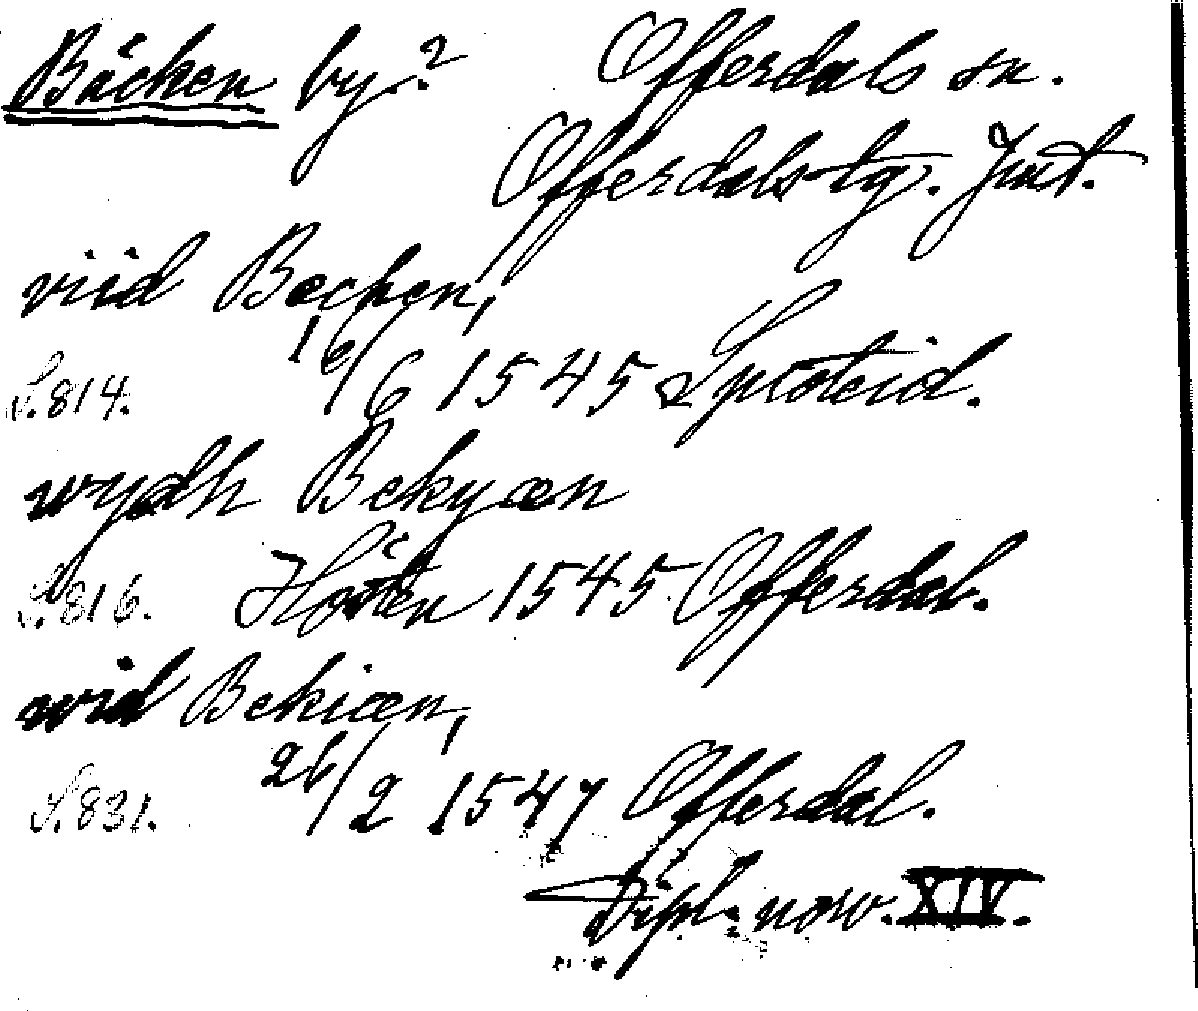 Bäcken by.? Offerdals sn.
Offerdals tg. Jmt.
viid Bechen,
S. 814. 16/6 1545
wydh Bekyæn
S. 816. Hösten 1545 Offerdal.
wid Bekiæn,
S. 831. 26/2 1547 Offerdal.
Dipl. norv. XIV.